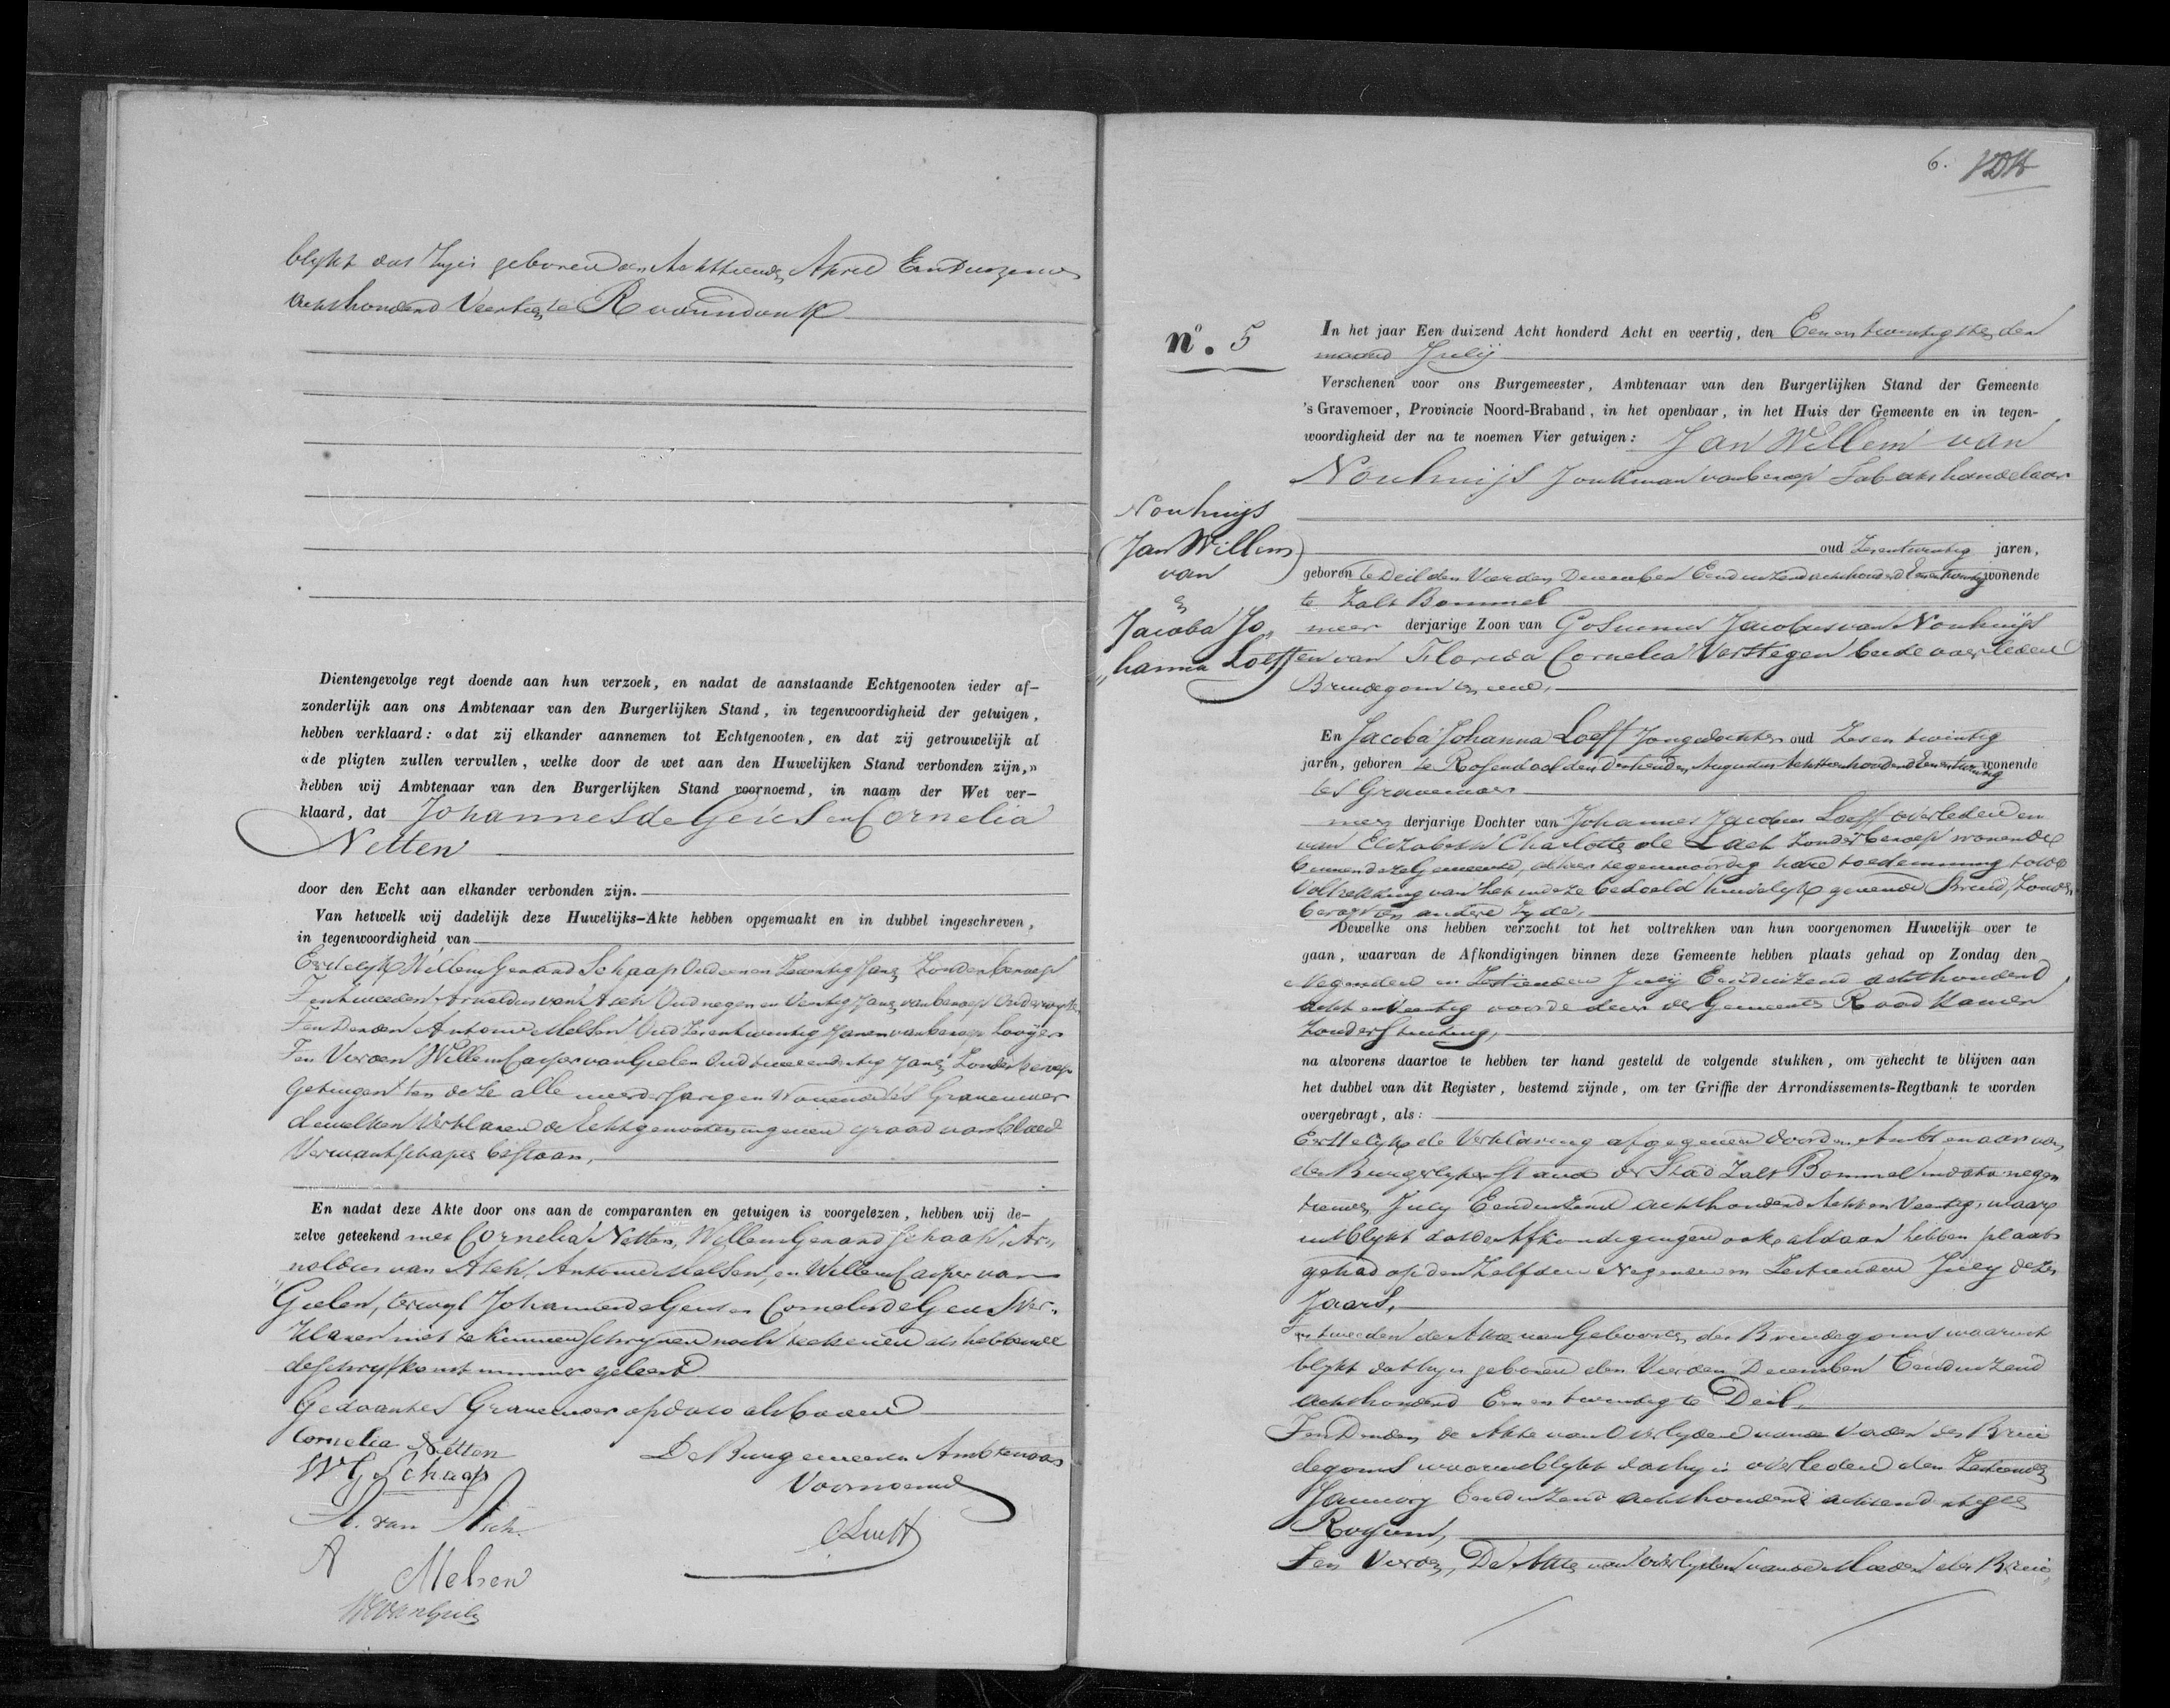 blykt dat Zy is geboren den Achttienden April Eenduizend
achthonderd Veertig te Raamsdonk
Dientengevolge regt doende aan hun verzoek, en nadat de aanstaande Echtgenooten ieder af-
zonderlijk aan ons Ambtenaar van den Burgerlijken Stand, in tegenwoordigheid der getuigen,
hebben verklaard: «dat zij elkander aannemen tot Echtgenooten, en dat zij getrouwelijk al
«de pligten zullen vervullen, welke door de wet aan den Huwelijken Stand verbonden zijn,»
hebben wij Ambtenaar van den Burgerlijken Stand voornoemd, in naam der Wet ver-
klaard, dat Johannes de Geus en Cornelia
Netten
door den Echt aan elkander verbonden zijn.
Van hetwelk wij dadelijk deze Huwelijks-Akte hebben opgemaakt en in dubbel ingeschreven,
in tegenwoordigheid van
Eerstelyk Willem Gerard Schaap Oud eenen Zeventig Jaren Zonder beroep
Ten tweeden Arnoldus van Asch Oud negen en Veertig Jaren van beroep Onderwyzer
Ten Derden Antonie Melsen Oud Zesentwintig Jaren van beroep Looyer
Ten Vierden Willem Casper van Gielen Oud tweeendertig Jaren Zonder beroep
Getuigen ten deze alle meerderjarig en Wonende te s Gravemoer
dewelken Verklaren de Echtgenooten in geenen graad van bloed
Verwantschap te bestaan,
En nadat deze Akte door ons aan de comparanten en getuigen is voorgelezen, hebben wij de-
zelve geteekend met Cornelia Netten, Willem Gerard Schaap, Ar„
„noldus van Asch, Antonie Melsen, en Willem Casper van
Gielen, terwyl Johannes de Geus en Cornelis de Geus Ver„
klaren niet te kunnen schryven noch teekenen als hebbende
de schryfkunst nimmer geleerd
Gedaan te s Gravemoer op dato als boven
Cornelia Netten
De Burgemeester Ambtenaar
W. G. Schaap
Voornoemd
A. van Asch.
A Melsen
6.
no. 5
In het jaar Een duizend Acht honderd Acht en veertig, den Eenentwintigsten der
maand Julij
Verschenen voor ons Burgemeester, Ambtenaar van den Burgerlijken Stand der Gemeente
's Gravemoer, Provincie Noord-Braband, in het openbaar, in het Huis der Gemeente en in tegen-
woordigheid der na te noemen Vier getuigen: Jan Willem van
Nouhuijs Jonkman van beroep Tabakshandelaar
Nouhuijs
Jan Willem
van
&
Jacoba Jo„
„hanna Loeff
oud Zesentwintig jaren,
geboren te Deil den Vierden December Eenduizend achthonderd Eenentwintig wonende
te Zalt Bommel
meer derjarige Zoon van Gosuinus Jacobus van Nouhuijs
en van Florida Cornelia Verstegen beide overleden
Bruidegom ter eene,
En Jacoba Johanna Loeff Jongedochter oud Zesen twintig
jaren, geboren te Rosendaal den Dertienden Augustus Achttienhonderd Eenentwintig wonende
te s Gravemoer
meer derjarige Dochter van Johannes Jacobus Loeff overleden en
van Elizabeth Charlotte de Lach Zonder beroep wonende
binnen deze Gemeente, alhier tegenwoordig hare toestemming tot de
Voltrekking van het in deze bedoeld huwelyk gevende Bruid, Zonder
beroep ter andere Zyde,
Dewelke ons hebben verzocht tot het voltrekken van hun voorgenomen Huwelijk over te
gaan, waarvan de Afkondigingen binnen deze Gemeente hebben plaats gehad op Zondag den
Negenden en Zestienden July Eenduizend achthonderd
Acht en Veertig voor de deur der Gemeente Raad Kamer
Zonder Stuiting,
na alvorens daartoe te hebben ter hand gesteld de volgende stukken, om gehecht te blijven aan
het dubbel van dit Register, bestemd zijnde, om ter Griffie der Arrondissements-Regtbank te worden
overgebragt, als:
Eerstelyk de Verklaring afgegeven door den Ambtenaar van
den Burgerlyken Stand der Stad Zalt Bommel in dato negen
tienden July Eenduizend achthonderd Acht en Veertig, waar
uit blykt dat de Afkondigingen ook aldaar hebben plaats
gehad op den Zelfden Negenden en Zestienden July dezes
Jaars,
Ten tweeden de Akte van Geboorte, des Bruidegoms waaruit
blykt dat hy is geboren den Vierden December Eenduizend
achthonderd Een en twintig te Deil,
Ten Derden de Akte van Overlyden van de Vader des Brui
degoms waaruit blykt dat hy is overleden den Zestienden
January Eenduizend achthonderd achtendertig te
Rossum,
Ten Vierden, De Akte van overlyden van de Moeder des Brui„